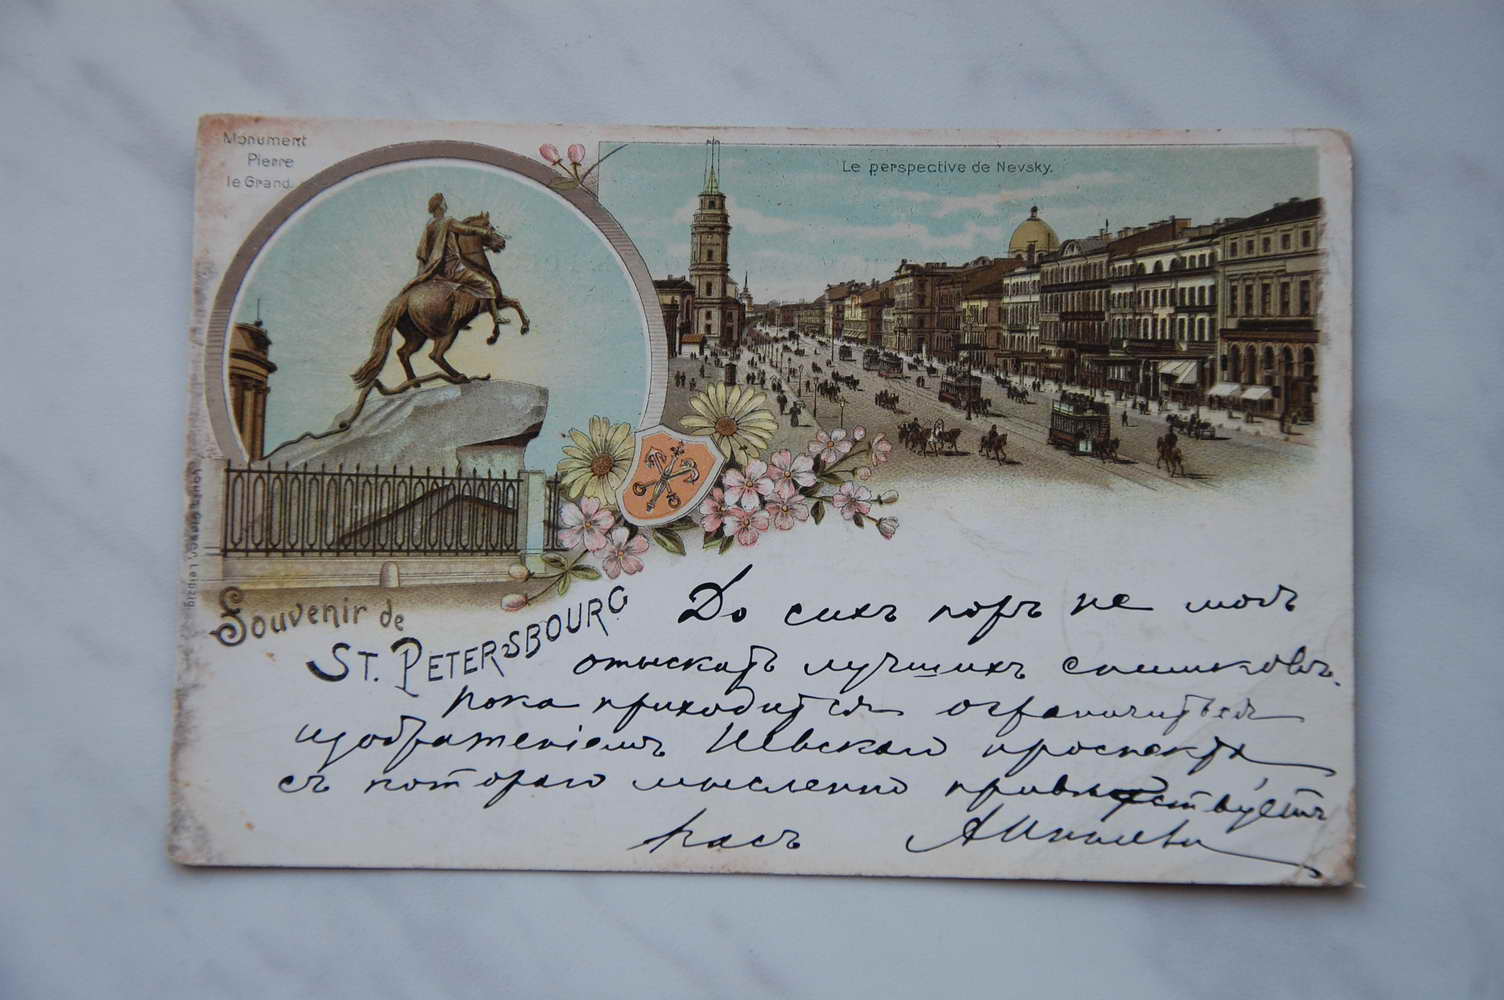 Monument
Pierre
le Grand.
Le perspective de Nevsky.
Leipzig
Souvenir de
ST. PETERSBOURG
До сихъ поръ не могъ
отыскать лучшихъ снимковъ.
пока приходится ограничиться
изображеніемъ Невскаго проспекта
съ котораго мысленно привѣтствуетъ
Васъ А